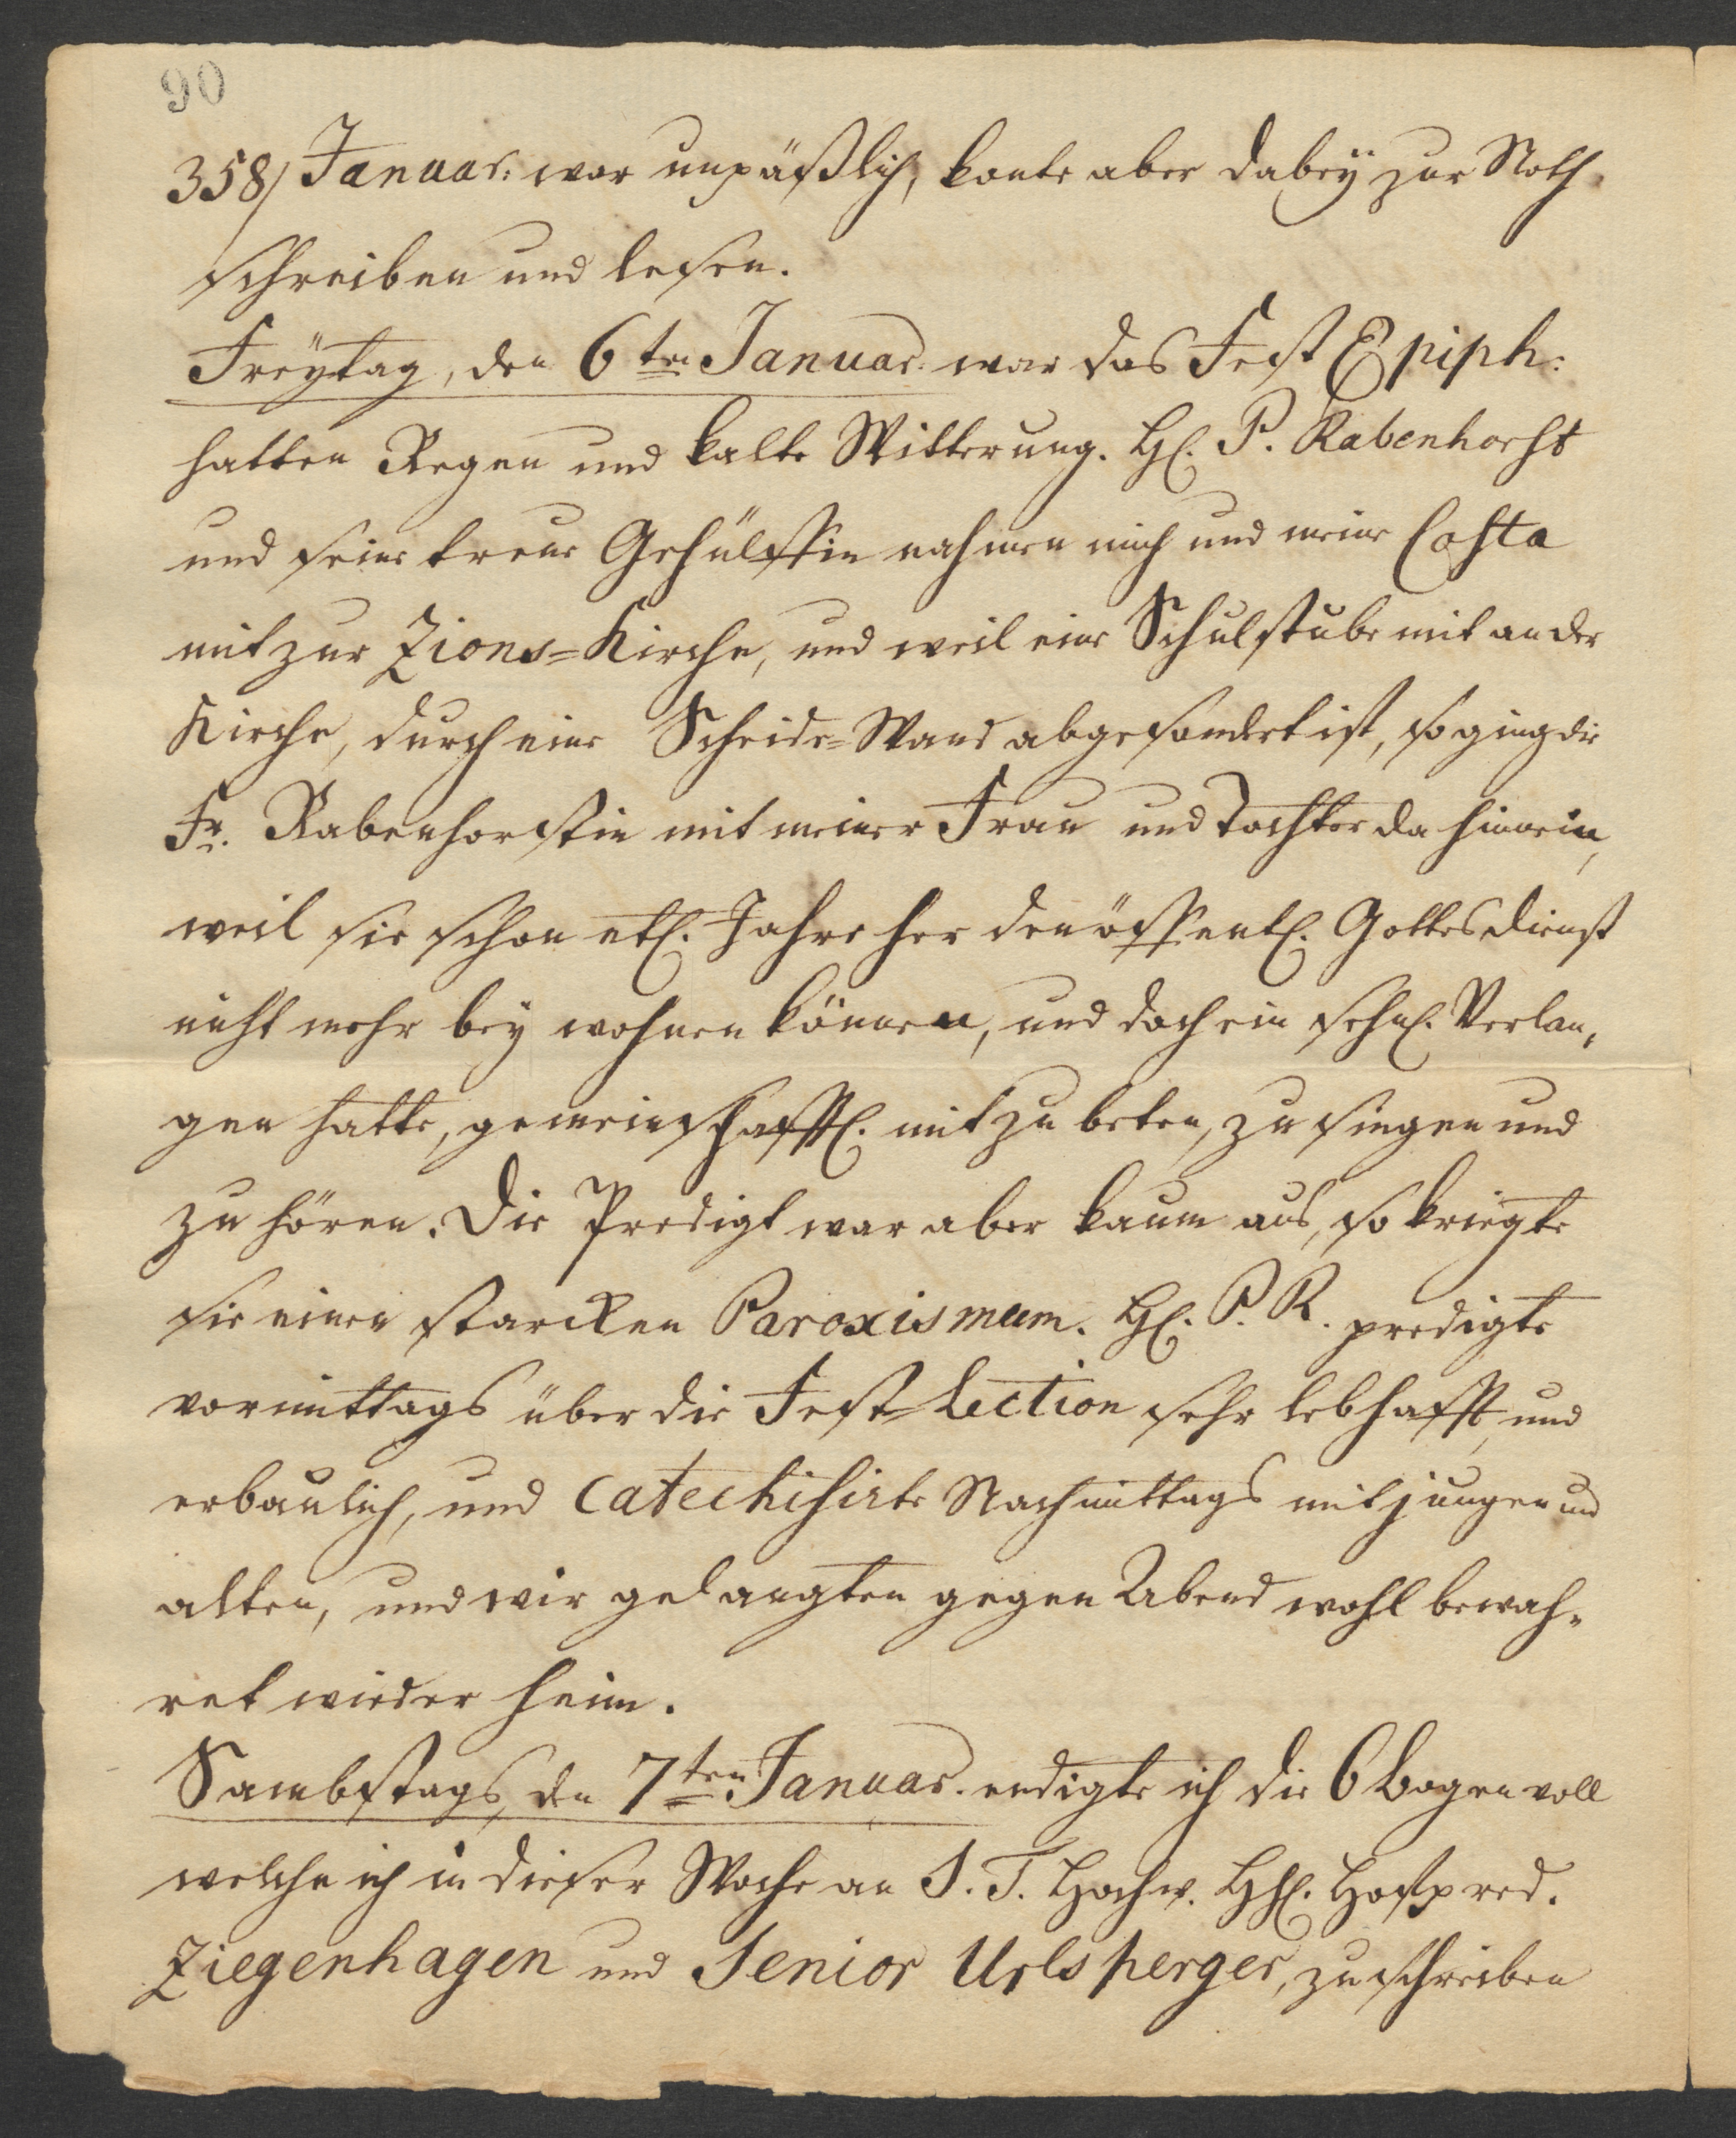 90
358/ Januar: war unpäßlich, konte aber dabeÿ zur Noth
schreiben und lesen.
Freÿtag, den 6ten Januar. war das Fest Epiph:
hatten Regen und kalte Witterung. H. P. Rabenhorst
und seine treue Gehülffin nahmen mich und meine Costa
mit zur Zions=Kirche, und weil eine Schulstube mit an der
Kirche, durch eine Scheide=Wand abgesondert ist, so ging die
Fr. Rabenhorstin mit meiner Frau und Tochter da hinnein,
weil sie schon etl. Jahre her den öffentl. Gottesdienst
nicht mehr bey wohnen können, und doch ein sehnl. Verlan„
gen hatte, gemeinschafftl. mit zu beten, zu singen und
zu hören. Die Predigt war aber kaum aus, so kriegte
sie einen starcken Paroxismum. H. P. R. predigte
vormittags über die Fest=Lection sehr lebhafft, und
erbaulich, und catechisirte Nachmittags mit jungen und
alten, und wir gelangten gegen Abend wohl bewah„
ret wieder heim.
Sambstags, den 7ten Januar. endigte ich die 6 Bogen voll
welche ich in dieser Woche an S. T. Hochw. HH. Hofpred.
Ziegenhagen und Senior Urlsperger, zu schreiben